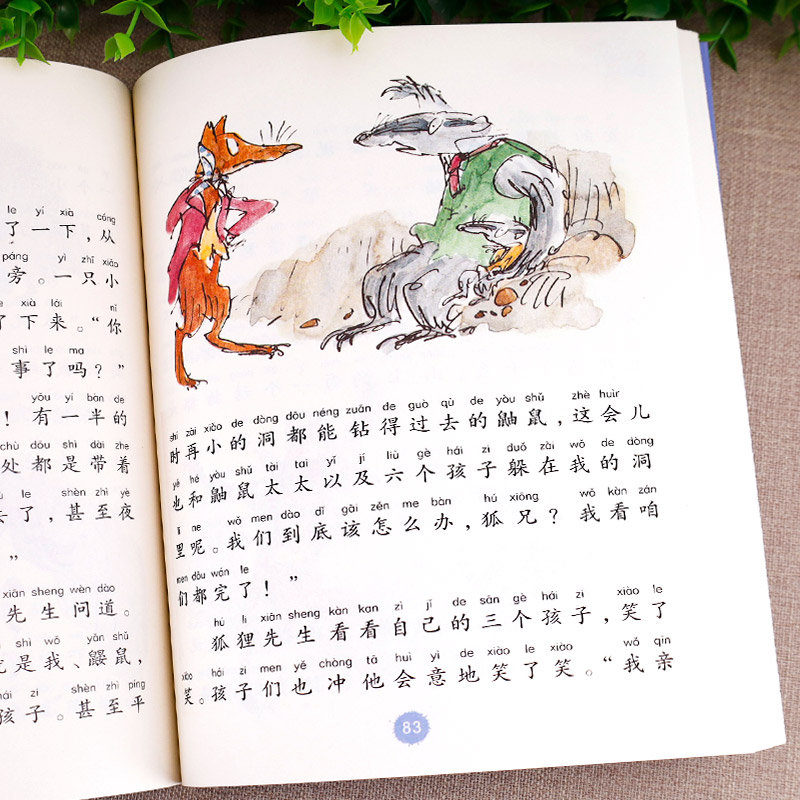 le yí xià cóng
了一下，从
páng yì zhī xiǎo
旁。一只小
xià lái nǐ
了下来。“你
shì le ma
事了吗？”
yǒu yí bàn de
！有一半的
chù dōu shì dài zhe
处都是带着
le shèn zhì yè
了，甚至夜
”
xiān sheng wèn dào
先生问道。
shì wǒ yǎn shǔ
是我、鼹鼠，
hái zi shèn zhì píng
孩子。甚至平
shí zài xiǎo de dòng dōu néng zuān de guò qù de yòu shǔ zhè huìr
时再小的洞都能钻得过去的鼬鼠，这会儿
yě hé yòu shǔ tài tai yǐ jí liù gè hái zi duǒ zài wǒ de dòng
也和鼬鼠太太以及六个孩子躲在我的洞
lǐ ne wǒ men dào dǐ gāi zěn me bàn hú xiōng wǒ kàn zán
里呢。我们到底该怎么办，狐兄？我看咱
men dōu wán le
们都完了！”
hú li xiān sheng kàn kan zì jǐ de sān gè hái zi xiào le
狐狸先生看看自己的三个孩子，笑了
xiào hái zi men yě chòng tā huì yì de xiào le xiào wǒ qīn
笑。孩子们也冲他会意地笑了笑。“我亲
83